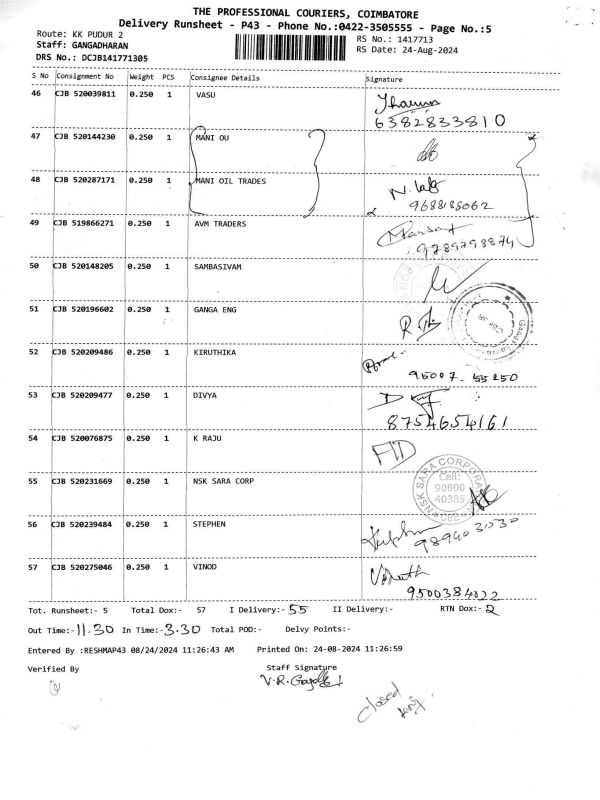 THE PROFESSIONAL COURIERS, COIMBATORE
Delivery Runsheet - P43 - Phone No.:0422-3505555 - Page No.:5
Route: KK PUDUR 2
RS No.: 1417713
Staff: GANGADHARAN
RS Date: 24-Aug-2024
DRS No.: DCJB141771305
S No Consignment No Weight PCS Consignee Details Signature
46 CJB 520039811 0.250 1 VASU
6382833810
47 CJB 520144230 0.250 1 MANI OU
48 CJB 520287171 0.250 1 MANI OIL TRADES
9688188062
49 CJB 519866271 0.250 1 AVM TRADERS
9789793874
50 CJB 520148205 0.250 1 SAMBASIVAM
51 CJB 520196602 0.250 1 GANGA ENG
52 CJB 520209486 0.250 1 KIRUTHIKA
95007-55250
53 CJB 520209477 0.250 1 DIVYA
8754654161
54 CJB 520076875 0.250 1 K RAJU
55 CJB 520231669 0.250 1 NSK SARA CORP
NSK SARA CORPORA
Cell:
90800
40385
CBE
56 CJB 520239484 0.250 1 STEPHEN
9894031030
57 CJB 520275046 0.250 1 VINOD
9500384022
Tot. Runsheet:- 5 Total Dox:- 57 I Delivery:- 55 II Delivery:- RTN Dox:- 2
Out Time:- 11.30 In Time:- 3.30 Total POD:- Delvy Points:-
Entered By :RESHMAP43 08/24/2024 11:26:43 AM Printed On: 24-08-2024 11:26:59
Verified By Staff Signature
closed